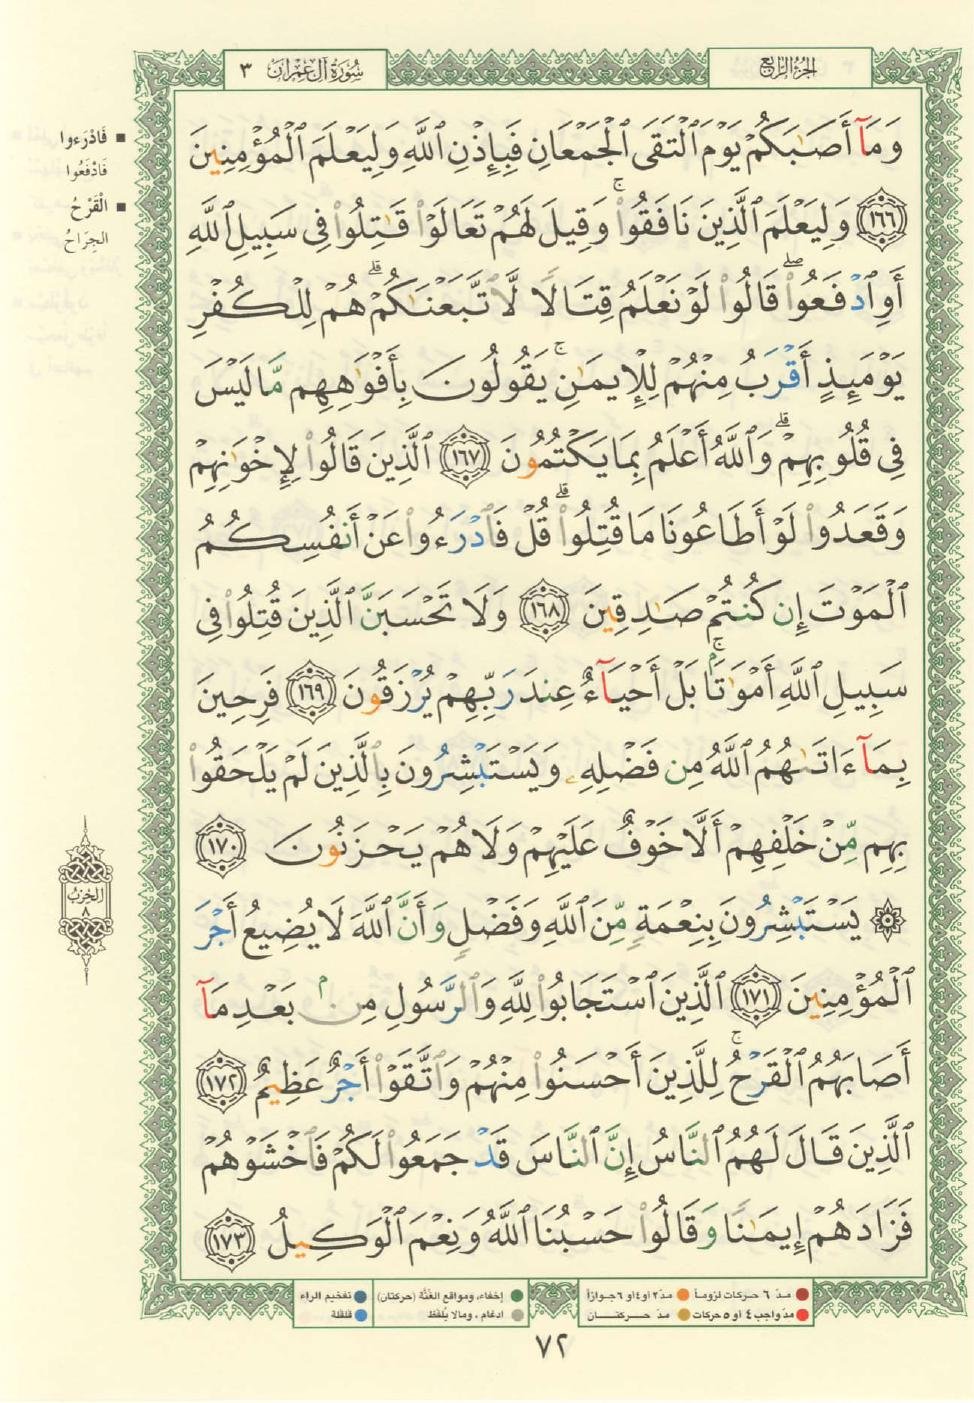 الجزء الرابع
سورة آل عمران ٣
وَمَآ أَصَٰبَكُمْ يَوْمَ ٱلْتَقَى ٱلْجَمْعَانِ فَبِإِذْنِ ٱللَّهِ وَلِيَعْلَمَ ٱلْمُؤْمِنِينَ
١٦٦ وَلِيَعْلَمَ ٱلَّذِينَ نَافَقُوا۟ ۚ وَقِيلَ لَهُمْ تَعَالَوْا۟ قَٰتِلُوا۟ فِى سَبِيلِ ٱللَّهِ
أَوِ ٱدْفَعُوا۟ ۖ قَالُوا۟ لَوْ نَعْلَمُ قِتَالًا لَّٱتَّبَعْنَٰكُمْ ۗ هُمْ لِلْكُفْرِ
يَوْمَئِذٍ أَقْرَبُ مِنْهُمْ لِلْإِيمَٰنِ ۚ يَقُولُونَ بِأَفْوَٰهِهِم مَّا لَيْسَ
فِى قُلُوبِهِمْ ۗ وَٱللَّهُ أَعْلَمُ بِمَا يَكْتُمُونَ ١٦٧ ٱلَّذِينَ قَالُوا۟ لِإِخْوَٰنِهِمْ
وَقَعَدُوا۟ لَوْ أَطَاعُونَا مَا قُتِلُوا۟ ۗ قُلْ فَٱدْرَءُوا۟ عَنْ أَنفُسِكُمُ
ٱلْمَوْتَ إِن كُنتُمْ صَٰدِقِينَ ١٦٨ وَلَا تَحْسَبَنَّ ٱلَّذِينَ قُتِلُوا۟ فِى
سَبِيلِ ٱللَّهِ أَمْوَٰتًۢا ۚ بَلْ أَحْيَآءٌ عِندَ رَبِّهِمْ يُرْزَقُونَ ١٦٩ فَرِحِينَ
بِمَآ ءَاتَىٰهُمُ ٱللَّهُ مِن فَضْلِهِۦ وَيَسْتَبْشِرُونَ بِٱلَّذِينَ لَمْ يَلْحَقُوا۟
بِهِم مِّنْ خَلْفِهِمْ أَلَّا خَوْفٌ عَلَيْهِمْ وَلَا هُمْ يَحْزَنُونَ ١٧٠
۞ يَسْتَبْشِرُونَ بِنِعْمَةٍ مِّنَ ٱللَّهِ وَفَضْلٍ وَأَنَّ ٱللَّهَ لَا يُضِيعُ أَجْرَ
ٱلْمُؤْمِنِينَ ١٧١ ٱلَّذِينَ ٱسْتَجَابُوا۟ لِلَّهِ وَٱلرَّسُولِ مِنۢ بَعْدِ مَآ
أَصَابَهُمُ ٱلْقَرْحُ ۚ لِلَّذِينَ أَحْسَنُوا۟ مِنْهُمْ وَٱتَّقَوْا۟ أَجْرٌ عَظِيمٌ ١٧٢
ٱلَّذِينَ قَالَ لَهُمُ ٱلنَّاسُ إِنَّ ٱلنَّاسَ قَدْ جَمَعُوا۟ لَكُمْ فَٱخْشَوْهُمْ
فَزَادَهُمْ إِيمَٰنًا وَقَالُوا۟ حَسْبُنَا ٱللَّهُ وَنِعْمَ ٱلْوَكِيلُ ١٧٣
فَادْرَءوا
فَادْفَعُوا
الْقَرْحُ
الجِرَاحُ
الحزب
٨
مدّ ٦ حركات لزوماً
مدّ ٢ او ٤ او ٦ جوازاً
مدّ واجب ٤ او ٥ حركات
مدّ حركتان
إخفاء، ومواقع الغُنَّة (حركتان)
ادغام، ومالا يُلفَظ
تفخيم الراء
قلقلة
٧٢